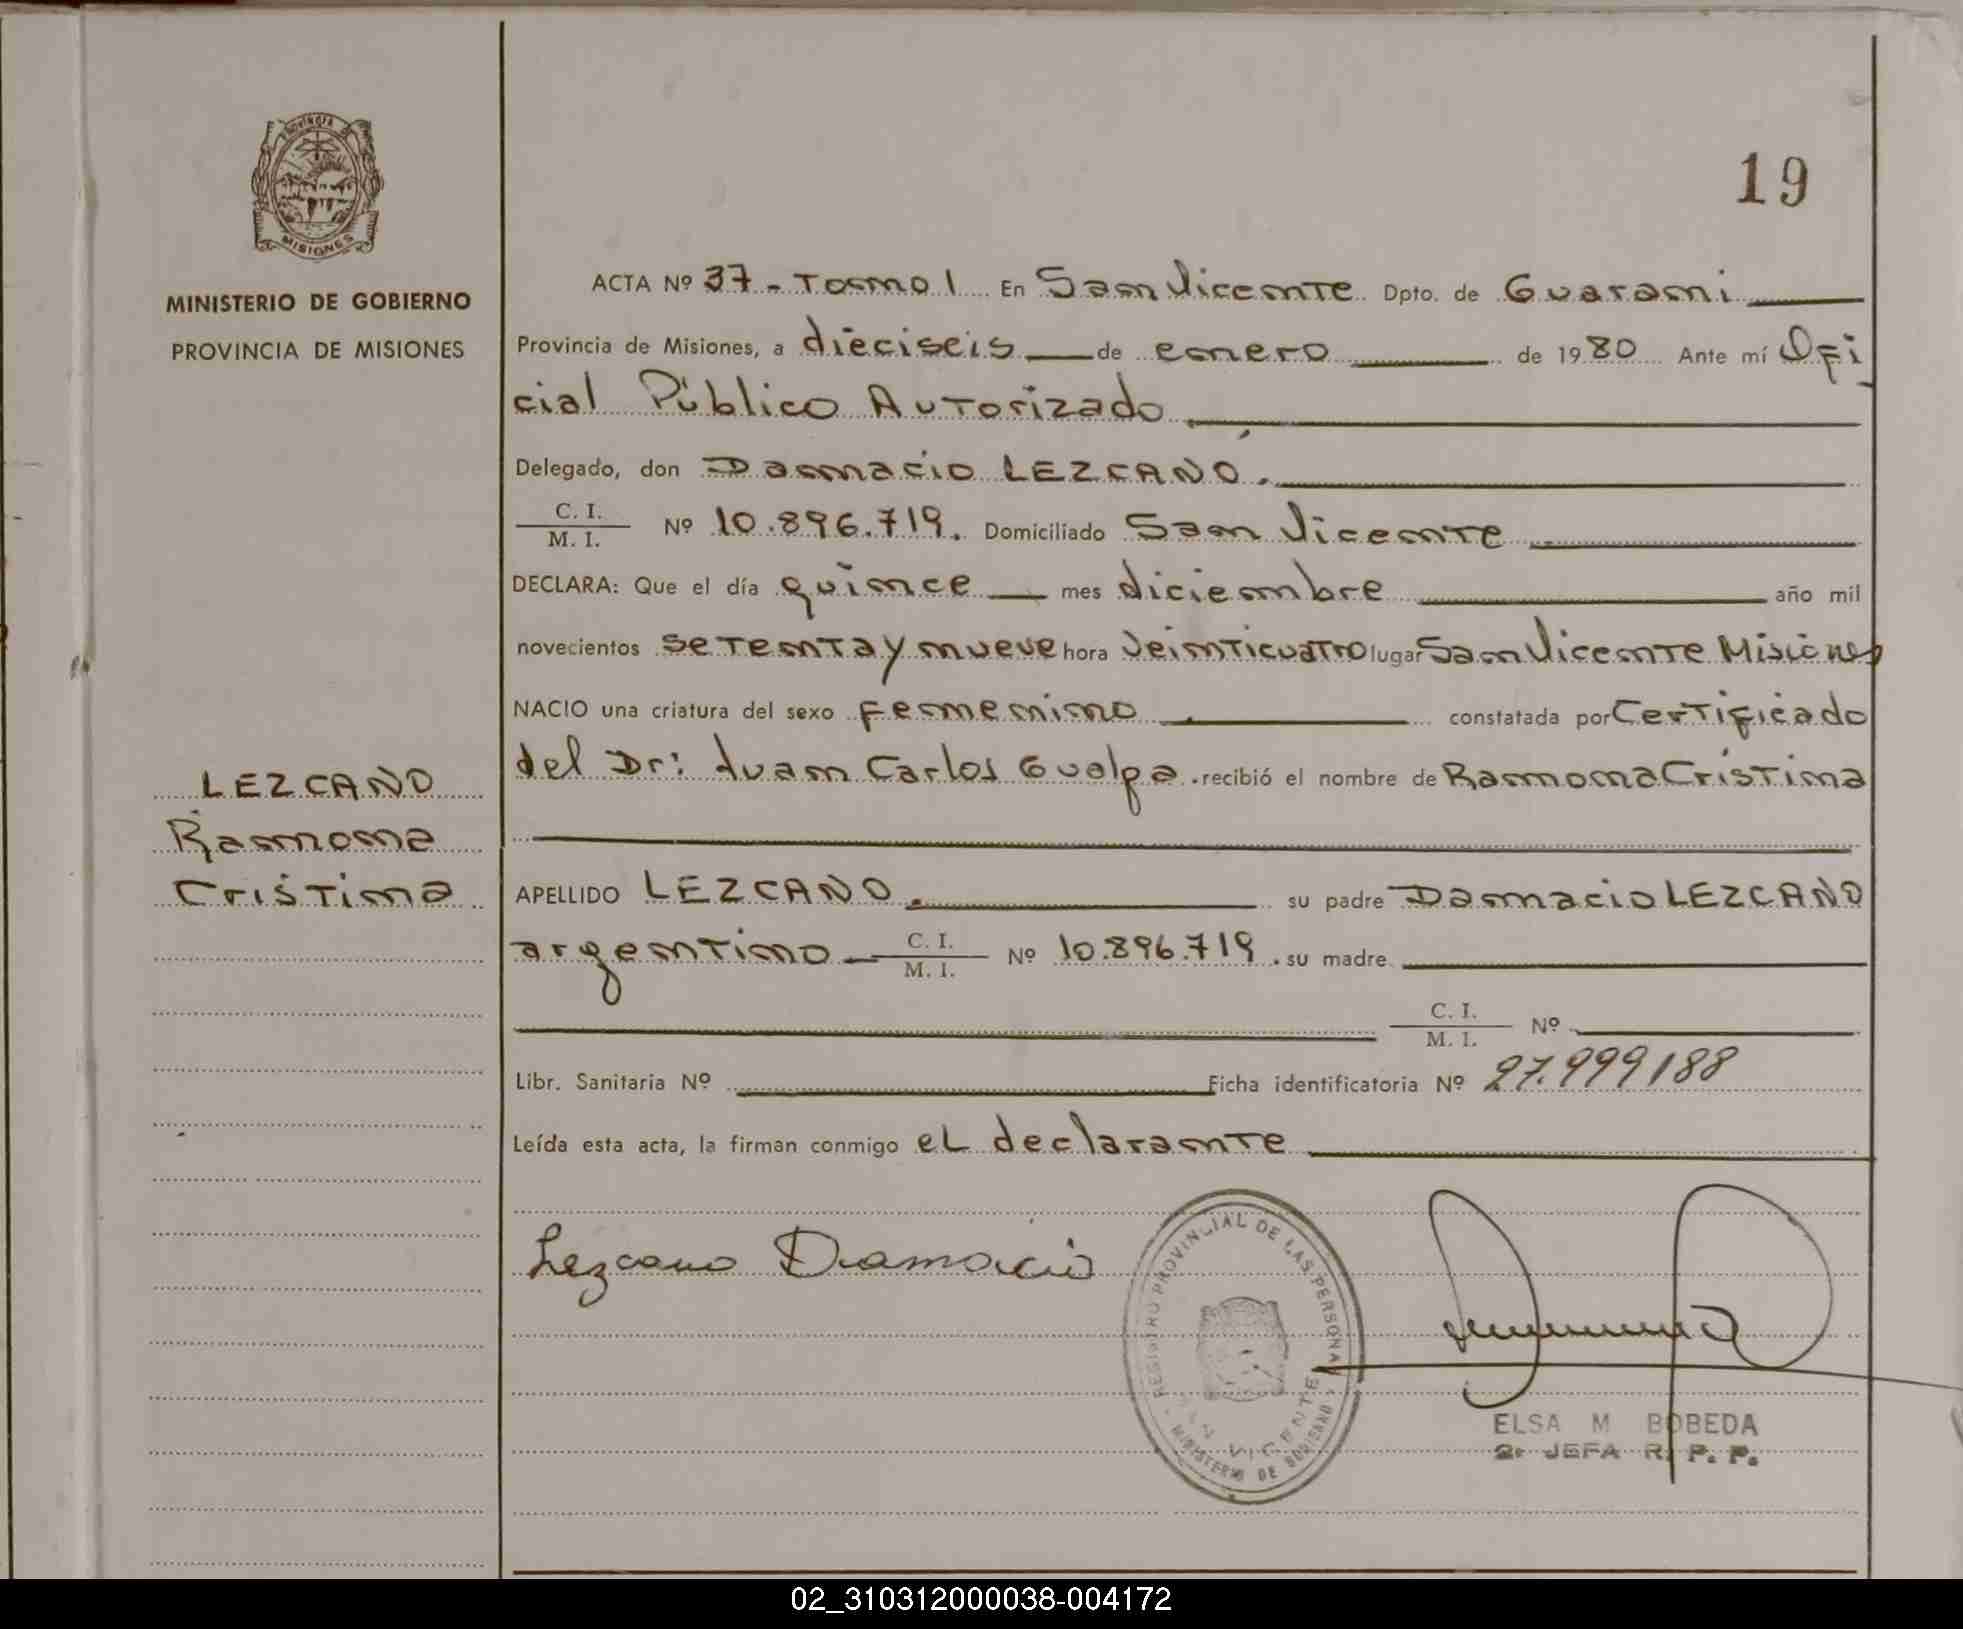 PROVINCIA DE
MISIONES
MINISTERIO DE GOBIERNO
PROVINCIA DE MISIONES
19
ACTA Nº 37 - Tomo 1 En San Vicente Dpto. de Guarani
Provincia de Misiones, a dieciseis de enero de 1980 Ante mí Ofi
cial Público Autorizado
Delegado, don Damacio LEZCANO.
C. I.
M. I. Nº 10.896.719. Domiciliado San Vicente
DECLARA: Que el día quince mes diciembre año mil
novecientos setenta y nueve hora veinticuatro lugar San Vicente Misiones
NACIO una criatura del sexo femenino constatada por Certificado
del Dr: Juan Carlos Gualpa. recibió el nombre de Ramona Cristina
LEZCANO
Ramona
Cristina
APELLIDO LEZCANO. su padre Damacio LEZCANO
argentino C. I.
M. I. Nº 10.896.719. su madre
C. I.
M. I. Nº
Libr. Sanitaria Nº Ficha identificatoria Nº 27.999188
Leída esta acta, la firman conmigo el declarante
Lezcano Damacio
REGISTRO PROVINCIAL DE LAS PERSONAS
SAN VICENTE
MINISTERIO DE GOBIERNO
ELSA M BOBEDA
2º JEFA R. P. P.
02_310312000038-004172